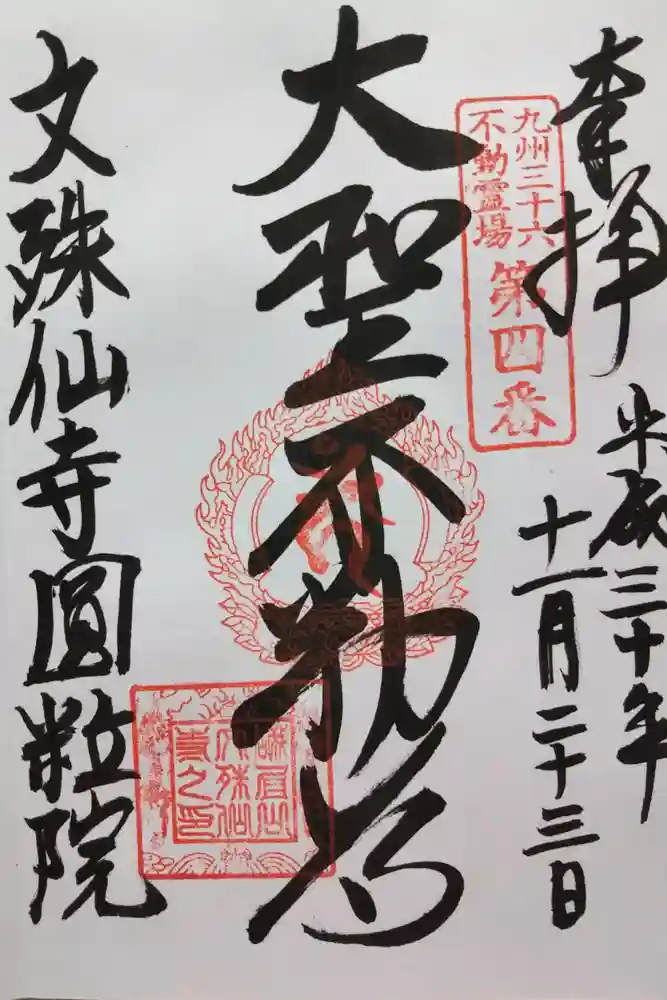 奉拝
平成三十年
十一月二十三日
九州三十六
不動霊場
第四番
大聖不動尊
文殊仙寺圓粒院